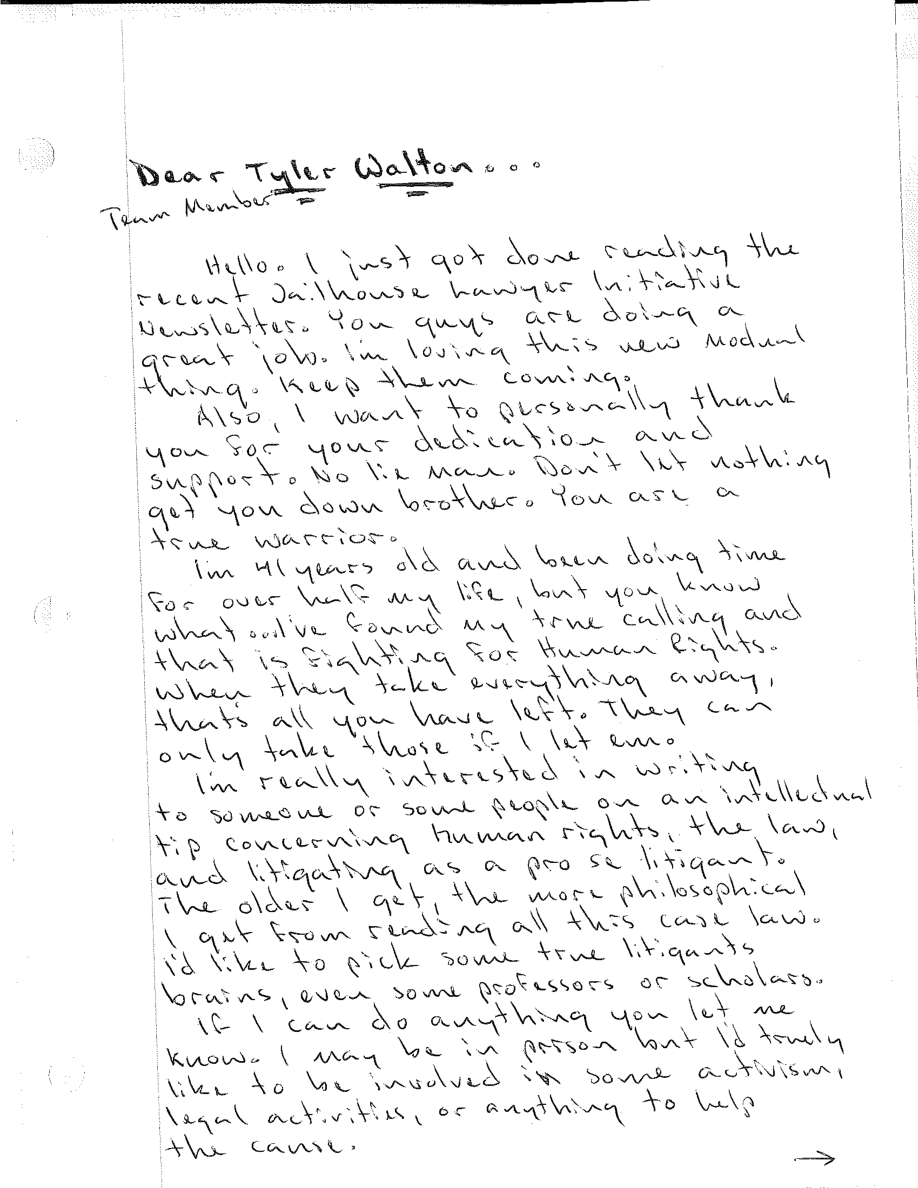 Dear Tyler Walton...
Team Member
Hello. I just got done reading the
recent Jailhouse Lawyer Initiative
Newsletter. You guys are doing a
great job. I'm loving this new Modual
thing. Keep them coming.
Also, I want to personally thank
you for your dedication and
support. No lie man. Don't let nothing
get you down brother. You are a
true warrior.
I'm 41 years old and been doing time
for over half my life, but you know
what...I've found my true calling and
that is fighting for Human Rights.
When they take everything away,
thats all you have left. They can
only take those if I let em.
I'm really interested in writing
to someone or some people on an intellectual
tip concerning human rights, the law,
and litigating as a pro se litigant.
The older I get, the more philosophical
I get from reading all this case law.
I'd like to pick some true litigants
brains, even some professors or scholars.
If I can do anything you let me
know. I may be in prison but I'd truely
like to be involved in some activism,
legal activities, or anything to help
the cause.
→